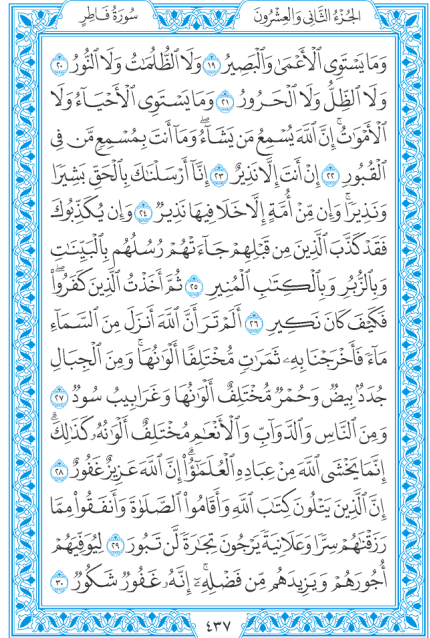 الجُزءُ الثَّانِي وَالعِشْرُونَ سُورَةُ فَاطِرٍ
وَمَا يَسْتَوِي ٱلْأَعْمَىٰ وَٱلْبَصِيرُ ١٩ وَلَا ٱلظُّلُمَٰتُ وَلَا ٱلنُّورُ ٢٠
وَلَا ٱلظِّلُّ وَلَا ٱلْحَرُورُ ٢١ وَمَا يَسْتَوِي ٱلْأَحْيَآءُ وَلَا
ٱلْأَمْوَٰتُ ۚ إِنَّ ٱللَّهَ يُسْمِعُ مَن يَشَآءُ ۖ وَمَآ أَنتَ بِمُسْمِعٍ مَّن فِي
ٱلْقُبُورِ ٢٢ إِنْ أَنتَ إِلَّا نَذِيرٌ ٢٣ إِنَّآ أَرْسَلْنَٰكَ بِٱلْحَقِّ بَشِيرًا
وَنَذِيرًا ۚ وَإِن مِّنْ أُمَّةٍ إِلَّا خَلَا فِيهَا نَذِيرٌ ٢٤ وَإِن يُكَذِّبُوكَ
فَقَدْ كَذَّبَ ٱلَّذِينَ مِن قَبْلِهِمْ جَآءَتْهُمْ رُسُلُهُم بِٱلْبَيِّنَٰتِ
وَبِٱلزُّبُرِ وَبِٱلْكِتَٰبِ ٱلْمُنِيرِ ٢٥ ثُمَّ أَخَذْتُ ٱلَّذِينَ كَفَرُوا۟ ۖ
فَكَيْفَ كَانَ نَكِيرِ ٢٦ أَلَمْ تَرَ أَنَّ ٱللَّهَ أَنزَلَ مِنَ ٱلسَّمَآءِ
مَآءً فَأَخْرَجْنَا بِهِۦ ثَمَرَٰتٍ مُّخْتَلِفًا أَلْوَٰنُهَا ۚ وَمِنَ ٱلْجِبَالِ
جُدَدٌۢ بِيضٌ وَحُمْرٌ مُّخْتَلِفٌ أَلْوَٰنُهَا وَغَرَابِيبُ سُودٌ ٢٧
وَمِنَ ٱلنَّاسِ وَٱلدَّوَآبِّ وَٱلْأَنْعَٰمِ مُخْتَلِفٌ أَلْوَٰنُهُۥ كَذَٰلِكَ ۗ
إِنَّمَا يَخْشَى ٱللَّهَ مِنْ عِبَادِهِ ٱلْعُلَمَٰٓؤُا۟ ۗ إِنَّ ٱللَّهَ عَزِيزٌ غَفُورٌ ٢٨
إِنَّ ٱلَّذِينَ يَتْلُونَ كِتَٰبَ ٱللَّهِ وَأَقَامُوا۟ ٱلصَّلَوٰةَ وَأَنفَقُوا۟ مِمَّا
رَزَقْنَٰهُمْ سِرًّا وَعَلَانِيَةً يَرْجُونَ تِجَٰرَةً لَّن تَبُورَ ٢٩ لِيُوَفِّيَهُمْ
أُجُورَهُمْ وَيَزِيدَهُم مِّن فَضْلِهِۦٓ ۚ إِنَّهُۥ غَفُورٌ شَكُورٌ ٣٠
٤٣٧